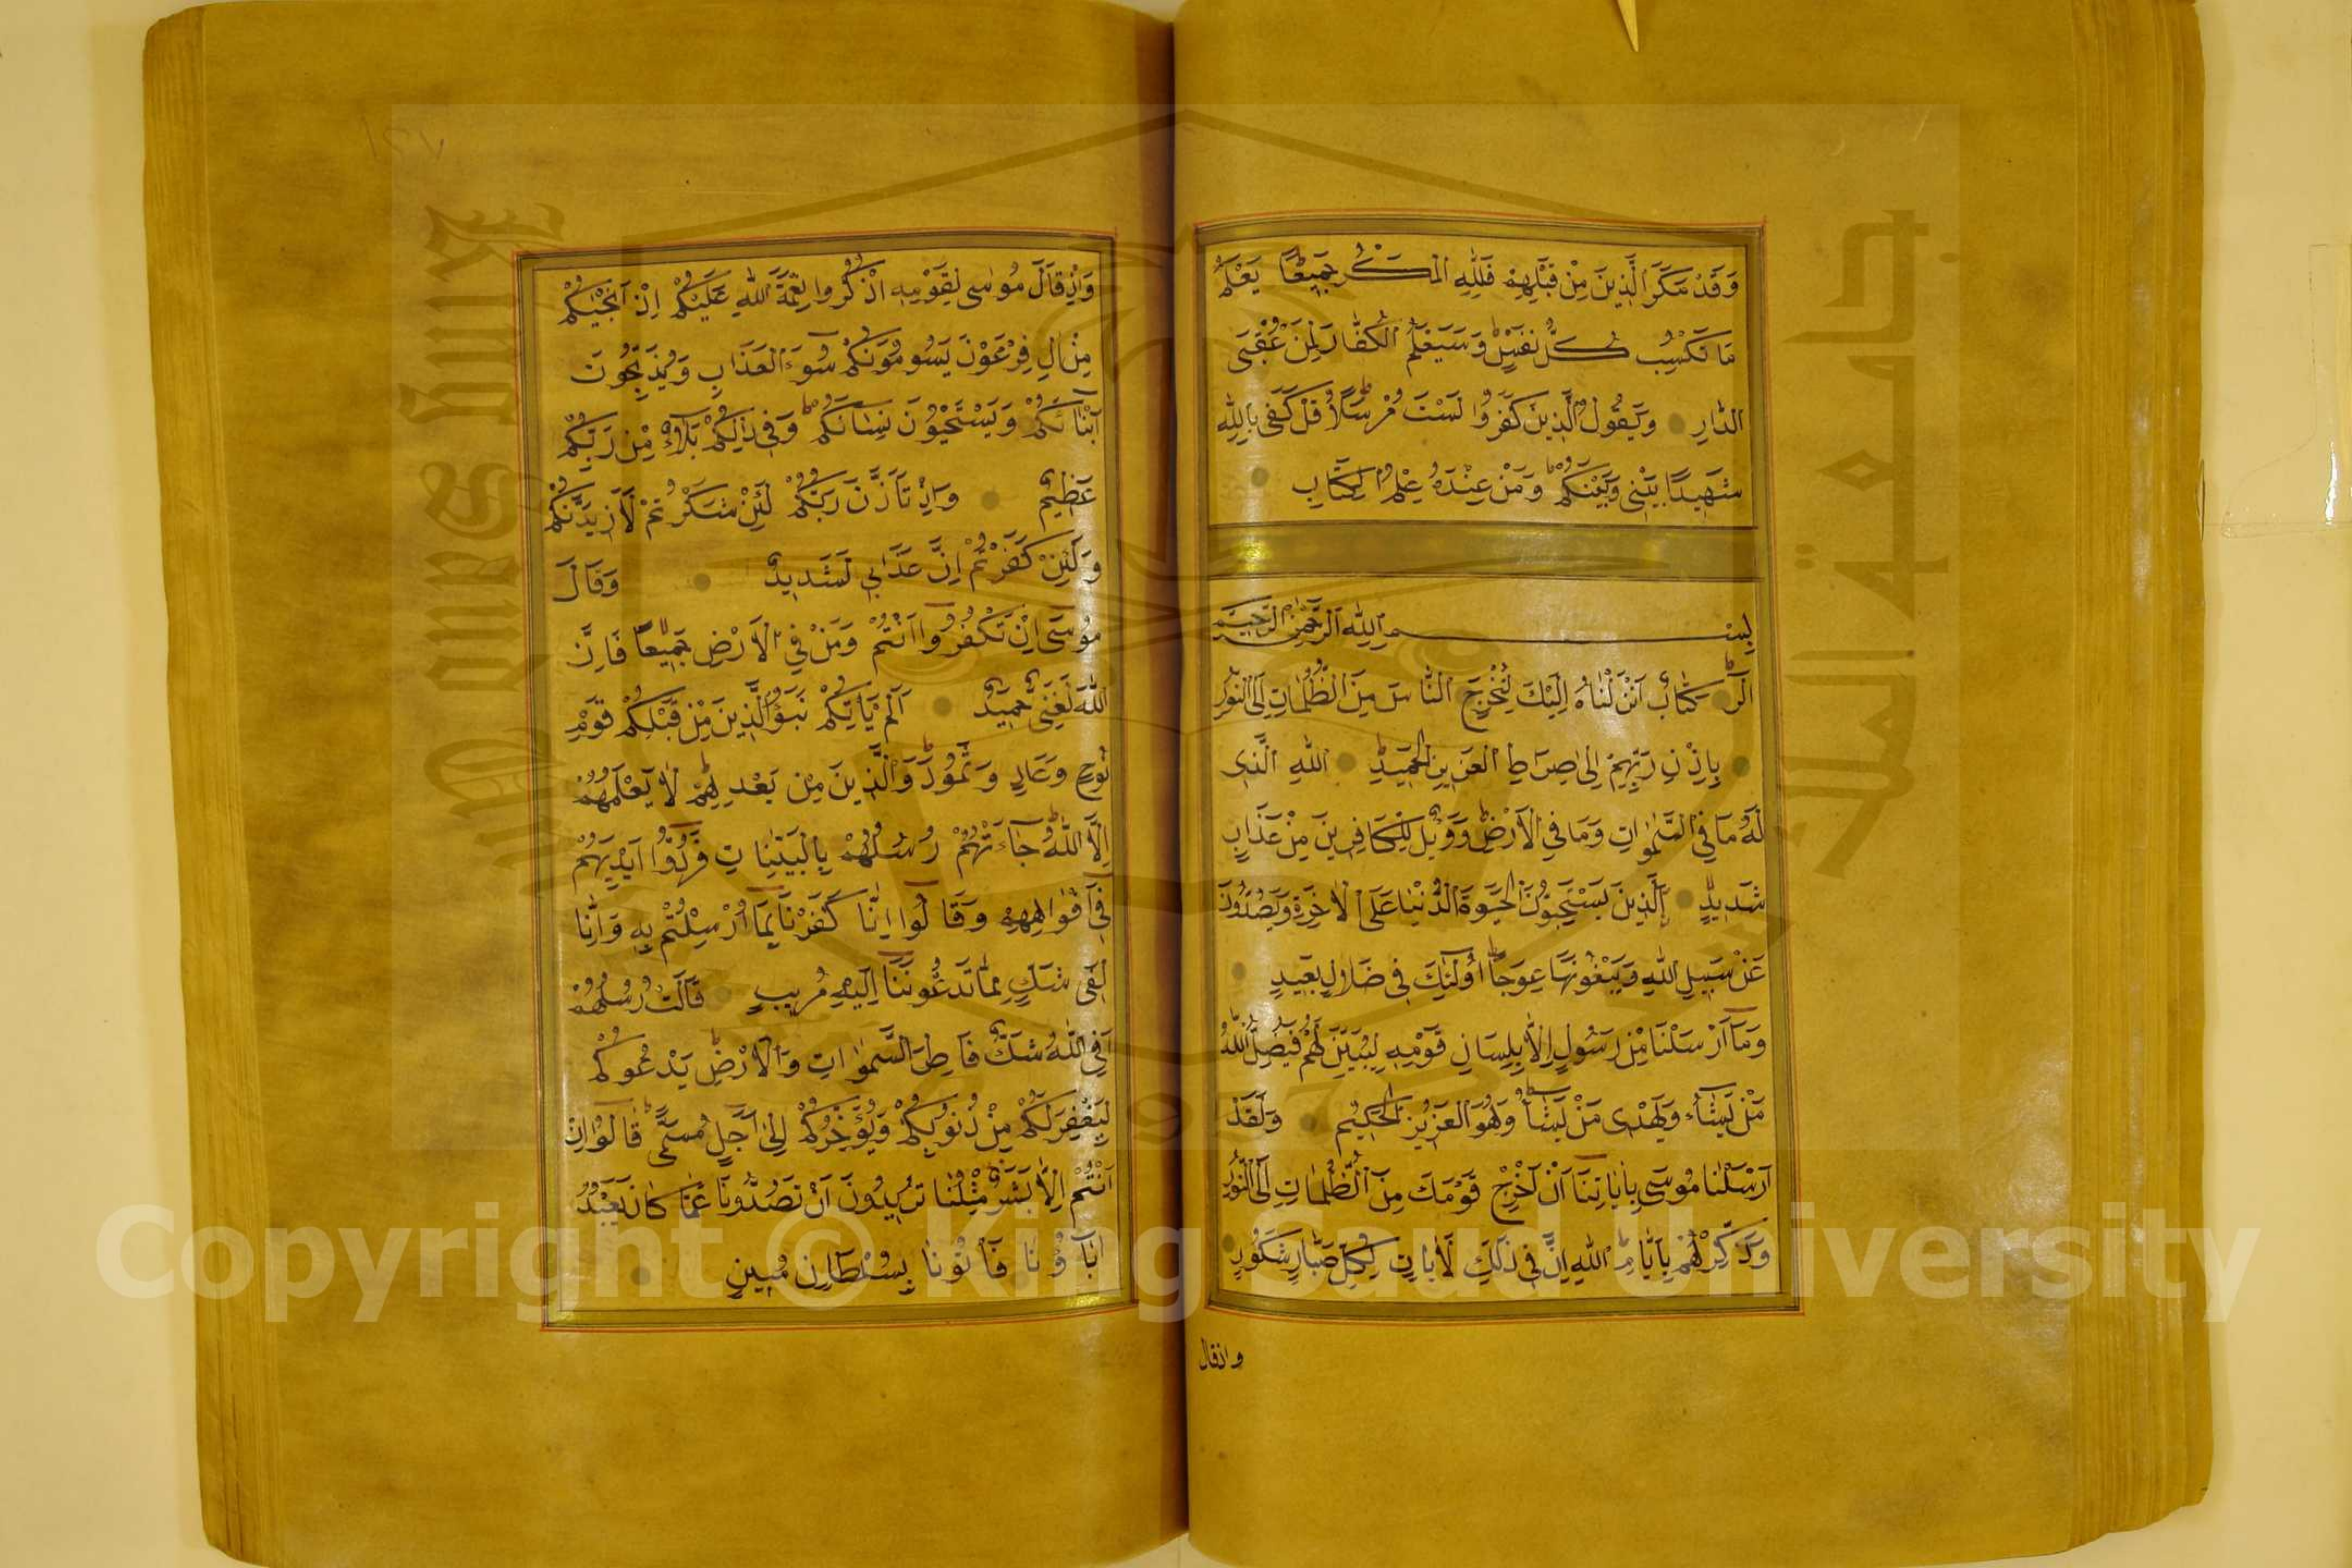 وَقَدْ مَكَرَ الَّذِينَ مِنْ قَبْلِهِمْ فَلِلّٰهِ الْمَكْرُ جَمِيعًا يَعْلَمُ
مَا تَكْسِبُ كُلُّ نَفْسٍ وَسَيَعْلَمُ الْكُفَّارُ لِمَنْ عُقْبَى
الدَّارِ وَيَقُولُ الَّذِينَ كَفَرُوا لَسْتَ مُرْسَلًا قُلْ كَفَى بِاللّٰهِ
شَهِيدًا بَيْنِي وَبَيْنَكُمْ وَمَنْ عِنْدَهُ عِلْمُ الْكِتَابِ
بِسْمِ اللّٰهِ الرَّحْمٰنِ الرَّحِيمِ
الٓرٰ كِتَابٌ اَنْزَلْنَاهُ اِلَيْكَ لِتُخْرِجَ النَّاسَ مِنَ الظُّلُمَاتِ اِلَى النُّورِ
بِاِذْنِ رَبِّهِمْ اِلَى صِرَاطِ الْعَزِيزِ الْحَمِيدِ اللّٰهِ الَّذِى
لَهُ مَا فِي السَّمٰوَاتِ وَمَا فِي الْاَرْضِ وَوَيْلٌ لِلْكَافِرِينَ مِنْ عَذَابٍ
شَدِيدٍ اَلَّذِينَ يَسْتَحِبُّونَ الْحَيٰوةَ الدُّنْيَا عَلَى الْاٰخِرَةِ وَيَصُدُّونَ
عَنْ سَبِيلِ اللّٰهِ وَيَبْغُونَهَا عِوَجًا اُولٰئِكَ فِى ضَلَالٍ بَعِيدٍ
وَمَٓا اَرْسَلْنَا مِنْ رَسُولٍ اِلَّا بِلِسَانِ قَوْمِهِ لِيُبَيِّنَ لَهُمْ فَيُضِلُّ اللّٰهُ
مَنْ يَشَٓاءُ وَيَهْدِى مَنْ يَشَٓاءُ وَهُوَ الْعَزِيزُ الْحَكِيمُ وَلَقَدْ
اَرْسَلْنَا مُوسَى بِاٰيَاتِنَٓا اَنْ اَخْرِجْ قَوْمَكَ مِنَ الظُّلُمَاتِ اِلَى النُّورِ
وَذَكِّرْهُمْ بِاَيَّامِ اللّٰهِ اِنَّ فِى ذٰلِكَ لَاٰيَاتٍ لِكُلِّ صَبَّارٍ شَكُورٍ
واذقال
وَاِذْ قَالَ مُوسَى لِقَوْمِهِ اذْكُرُوا نِعْمَةَ اللّٰهِ عَلَيْكُمْ اِذْ اَنْجٰيكُمْ
مِنْ اٰلِ فِرْعَوْنَ يَسُومُونَكُمْ سُٓوءَ الْعَذَابِ وَيُذَبِّحُونَ
اَبْنَٓاءَكُمْ وَيَسْتَحْيُونَ نِسَٓاءَكُمْ وَفِى ذٰلِكُمْ بَلَٓاءٌ مِنْ رَبِّكُمْ
عَظِيمٌ وَاِذْ تَاَذَّنَ رَبُّكُمْ لَئِنْ شَكَرْتُمْ لَاَزِيدَنَّكُمْ
وَلَئِنْ كَفَرْتُمْ اِنَّ عَذَابِي لَشَدِيدٌ وَقَالَ
مُوسَى اِنْ تَكْفُرُٓوا اَنْتُمْ وَمَنْ فِي الْاَرْضِ جَمِيعًا فَاِنَّ
اللّٰهَ لَغَنِيٌّ حَمِيدٌ اَلَمْ يَاْتِكُمْ نَبَؤُا الَّذِينَ مِنْ قَبْلِكُمْ قَوْمِ
نُوحٍ وَعَادٍ وَثَمُودَ وَالَّذِينَ مِنْ بَعْدِهِمْ لَا يَعْلَمُهُمْ
اِلَّا اللّٰهُ جَٓاءَتْهُمْ رُسُلُهُمْ بِالْبَيِّنَاتِ فَرَدُّٓوا اَيْدِيَهُمْ
فِٓى اَفْوَاهِهِمْ وَقَالُٓوا اِنَّا كَفَرْنَا بِمَٓا اُرْسِلْتُمْ بِهِ وَاِنَّا
لَفِى شَكٍّ مِمَّا تَدْعُونَنَٓا اِلَيْهِ مُرِيبٍ قَالَتْ رُسُلُهُمْ
اَفِى اللّٰهِ شَكٌّ فَاطِرِ السَّمٰوَاتِ وَالْاَرْضِ يَدْعُوكُمْ
لِيَغْفِرَ لَكُمْ مِنْ ذُنُوبِكُمْ وَيُؤَخِّرَكُمْ اِلَٓى اَجَلٍ مُسَمًّى قَالُٓوا اِنْ
اَنْتُمْ اِلَّا بَشَرٌ مِثْلُنَا تُرِيدُونَ اَنْ تَصُدُّونَا عَمَّا كَانَ يَعْبُدُ
اٰبَٓاؤُنَا فَاْتُونَا بِسُلْطَانٍ مُبِينٍ
Copyright © King Saud University
King Saud University
جامعة الملك سعود
1957